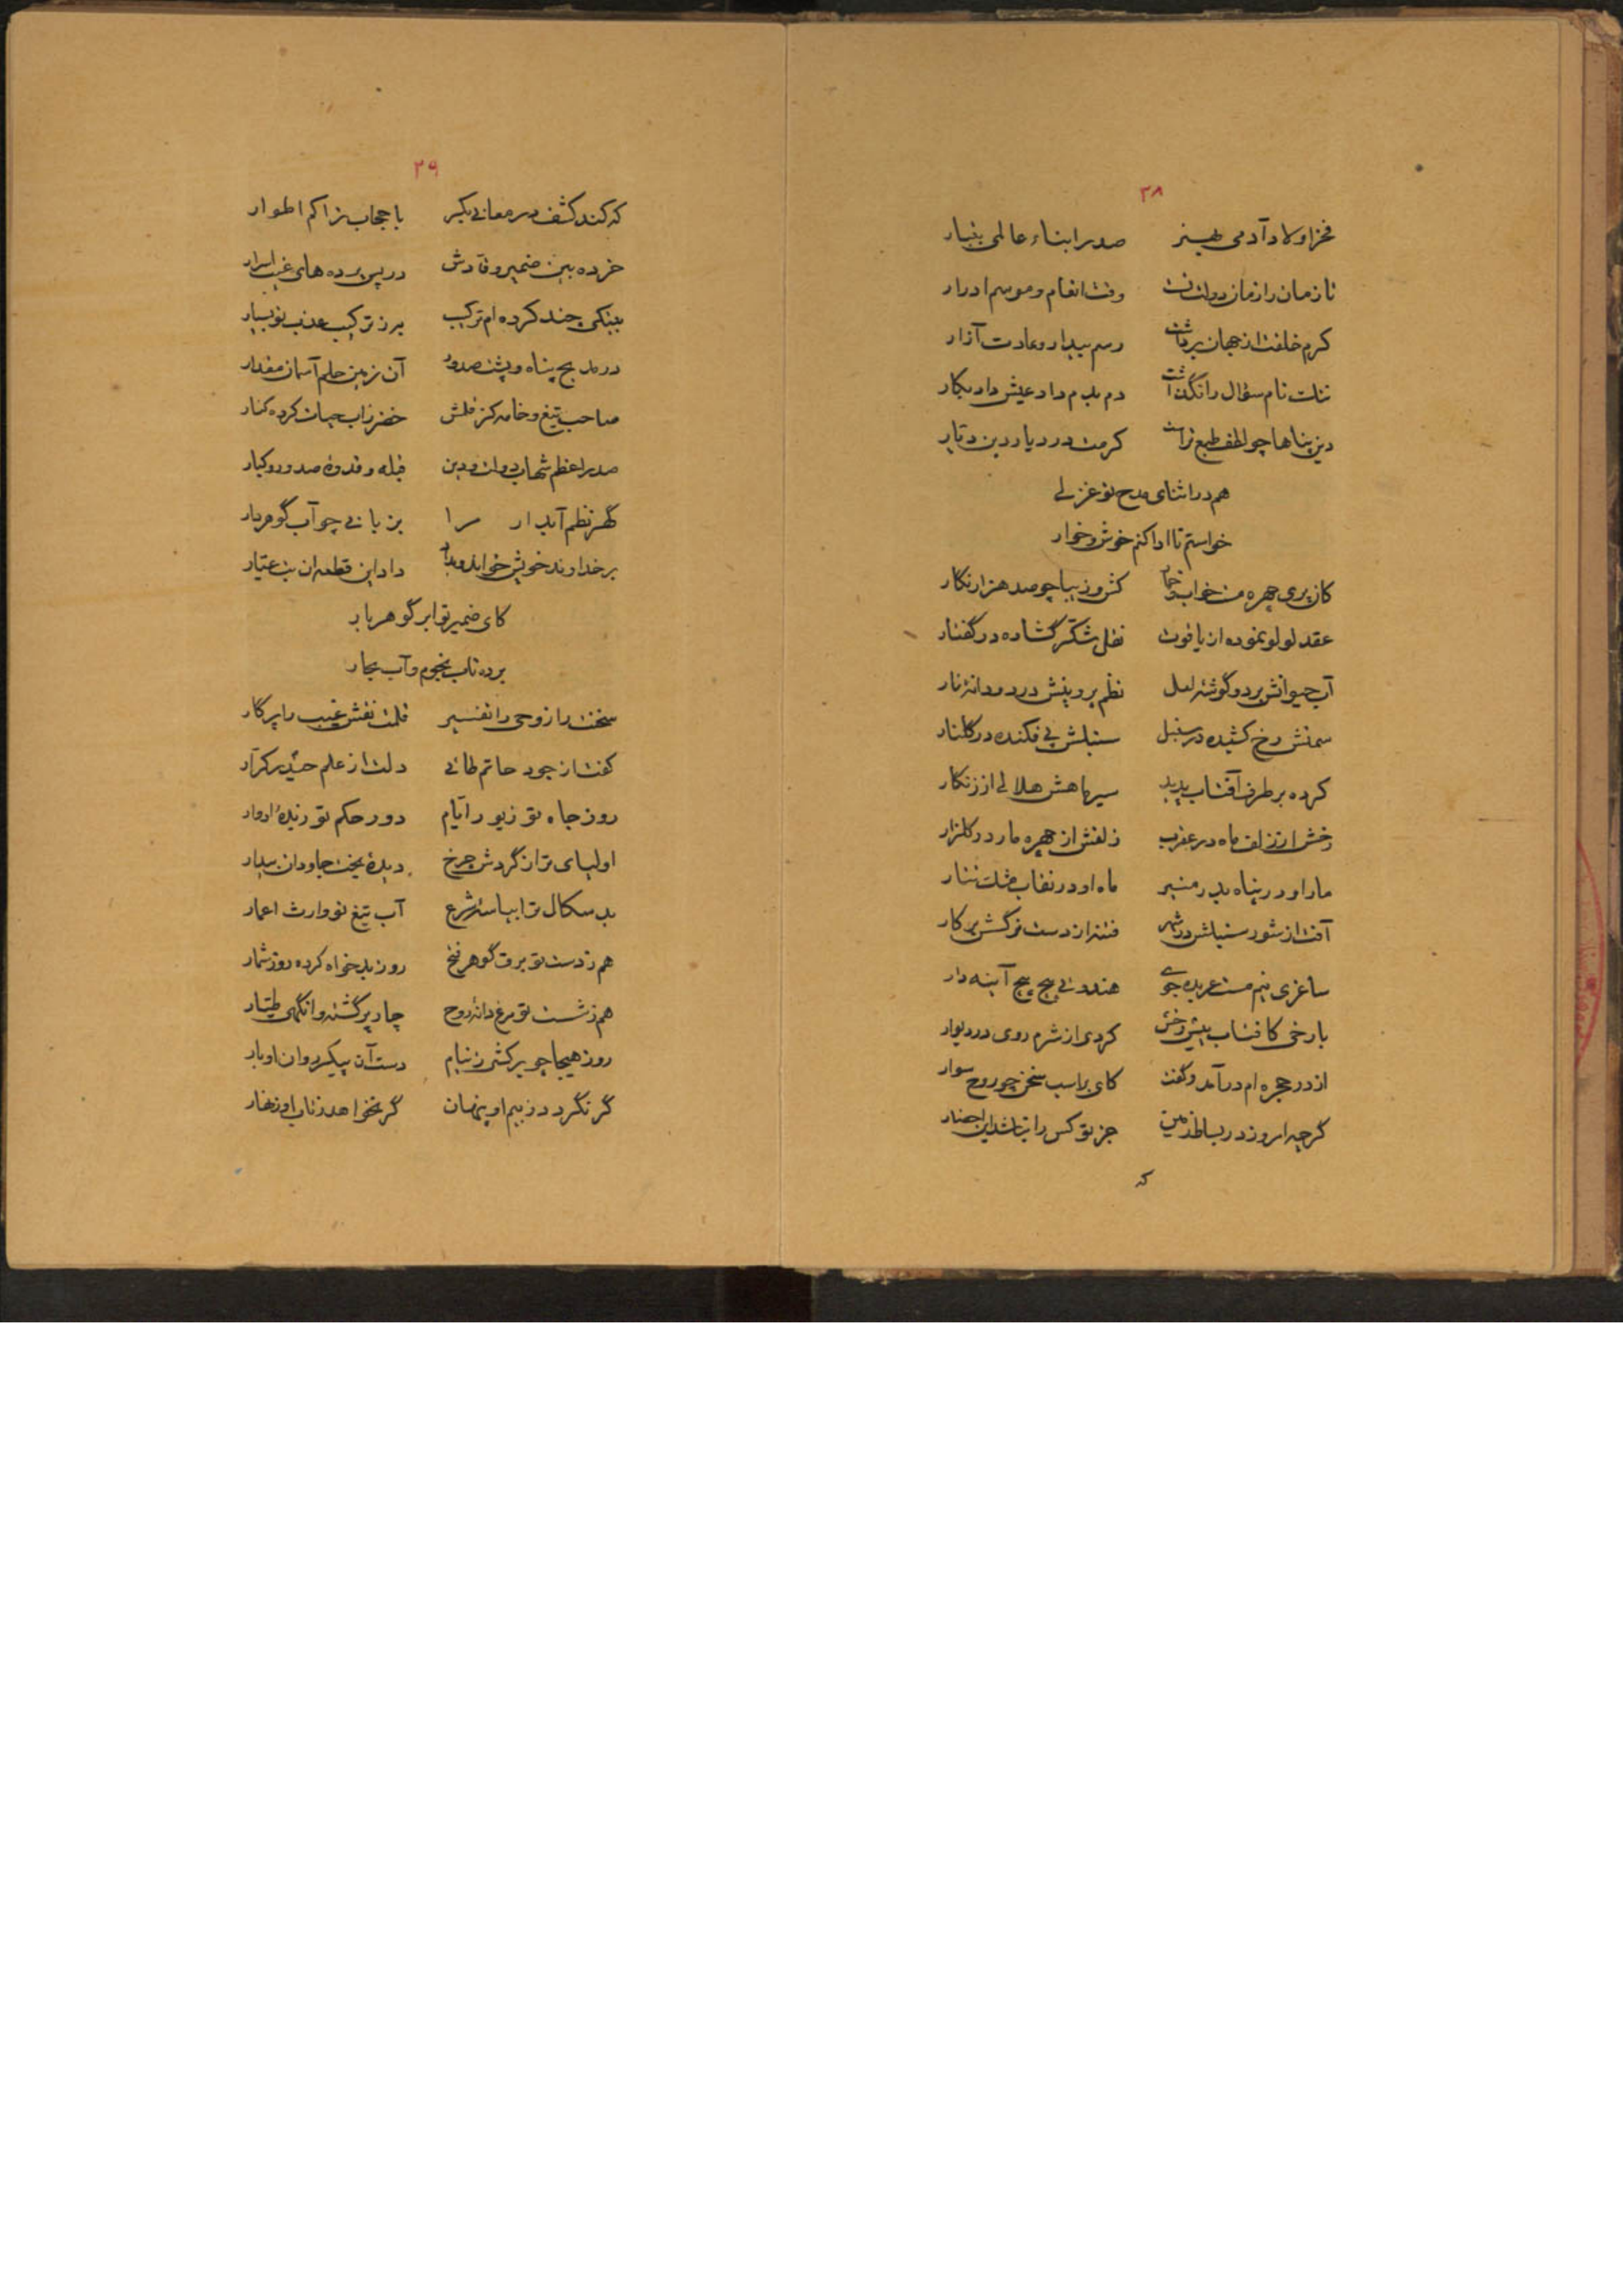 ۳۸
فخر اولاد آدمی بهنر صدر ابناء عالمی بتبار
تا زمان را زمان دولت تست وقت انعام و موسم ادرار
کرم خلقت از جهان برداشت رسم بیداد و عادت آزار
نام سؤال را نگذاشت دم بدم داد عیش داد
دین پناها چو لطف طبع تراست کرمت در دیار دین دیار
هم در اثنای مدح تو غزلی
خواستم تا ادا کنم خوش و خوار
کان پری چهره مست خواب و خمار کش و زیبا چو صد هزار نگار
عقد لولو نموده از یاقوت نقل شکر گشاده در گفتار
آب حیوانش بر دو گوشهٔ لعل نظم پروینش در دو دانهٔ نار
سمنش رخ کشیده در سنبل سنبلش پی فکنده در گلنار
کرده بر طرف آفتاب پدید سیر ماهش هلالی از زنگار
رخش از زلف ماه در عقرب زلفش از چهره مار در گلزار
مار او در پناه بدر منیر ماه او در نقاب مشک تتار
آفت از شور سنبلش در شهر فتنه از دست نرگسش بر کار
ساغری نیم مست عربده جوی هندوئی پیچ پیچ آینه دار
با رخی کافتاب پیش رخش کردی از شرم روی در دیوار
از در حجره ام درآمد و گفت کای بر اسب سخن چو روح سوار
گرچه امروز در بساط زمین جز تو کس را نباشد این
که
۳۹
که کند کشف در معانی بکر با حجاب تراکم اطوار
خرده بین ضمیر وقادش در پس پرده های غیب اسرار
بیتکی چند کرده ام ترکیب بر ز ترکیب عذب تو بسیار
در مدیح پناه و پشت صدور آن زمین حلم آسمان مقدار
صاحب تیغ و خامه کز قلمش خضر زاب حیات کرده کنار
صدر اعظم شهاب دولت و دین قبله و قدوهٔ صدور و کبار
گهر نظم آبدار مرا بزبانی چو آب گوهر بار
بر خداوند خویش خواند و بداد داد این قطعه ان
کای ضمیر تو ابر گوهر بار
برده تاب نجوم و آب بحار
سخنت راز وحی را تفسیر قلمت نقش غیب را پرگار
کفت از جود حاتم طائی دلت از علم حیدر کرار
روز جاه تو زیور ایام دور حکم تو زبدهٔ ادوار
اولیای ترا ز گردش چرخ دیدهٔ بخت جاودان بیدار
بد سگال ترا بپاسهٔ شرع آب تیغ تو وارث اعمار
هم ز دست تو برق گوهر روز بدخواه کرده روز شمار
هم ز شست تو مرغ دانهٔ روح چار پر گشته وانگهی طیار
روز هیجا چو برکشی ز نیام دست آن پیکر روان اوبار
گر نگردد ز بیم او پنهان گر نخواهد ز تاب او زنهار